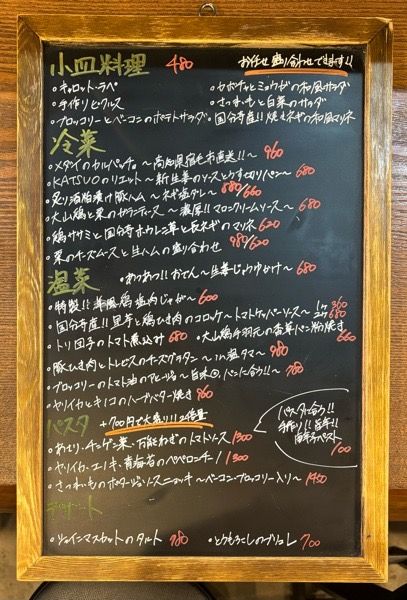 小皿料理 480 お任せ盛り合わせできます!!
・キャロット・ラペ ・カボチャとミョウガの和風サラダ
・手作りピクルス ・さつまいもと白菜のサラダ
・ブロッコリーとベーコンのポテトサラダ ・国分寺産!! 焼きネギの和風マリネ
冷菜
・メダイのカルパッチョ 〜高知県宿毛市直送!!〜 960
・KATSUOのリエット 〜新生姜のソースとうすぎりパン〜 680
・炙り酒粕漬け豚ハム 〜ネギ塩ダレ〜 880/660
・大山鶏と栗のガランティーヌ 〜濃厚!! マロンクリームソース〜 680
・鶏ササミと国分寺ホウレン草と長ネギのマリネ 620
・栗のチーズムースと生ハムの盛り合わせ 980/620
温菜 ・あつあつ!! おでん 〜生姜じょうゆかけ〜 680
・特製!! 洋風鶏塩肉じゃが〜 600
・国分寺産!! 里芋と鶏ひき肉のコロッケ 〜トマトケッパーソース〜 1ケ 360 2ケ 680
・トリ団子のトマト煮込み 680 ・大山鶏手羽元の香草パン粉焼き 660
・豚ひき肉とトレビスのチーズグラタン 〜in温タマ〜 980
・ブロッコリーのトマト油のアヒージョ 〜白米、パンに合う!!〜 780
・ヤリイカとキノコのハーブバター焼き 960
パスタ +700円で大盛り!! 2倍量
・あさり、チンゲン菜、万能ねぎのトマトソース 1300
・ヤリイカ、エノキ、青海苔のペペロンチーノ 1300
・さつまいものポタージュソースニョッキ 〜ベーコン・ブロッコリー入り〜 1450
パスタに合う!!
手作り!!
100
デザート
・シャインマスカットのタルト 780 ・とうもろこしのブリュレ 700